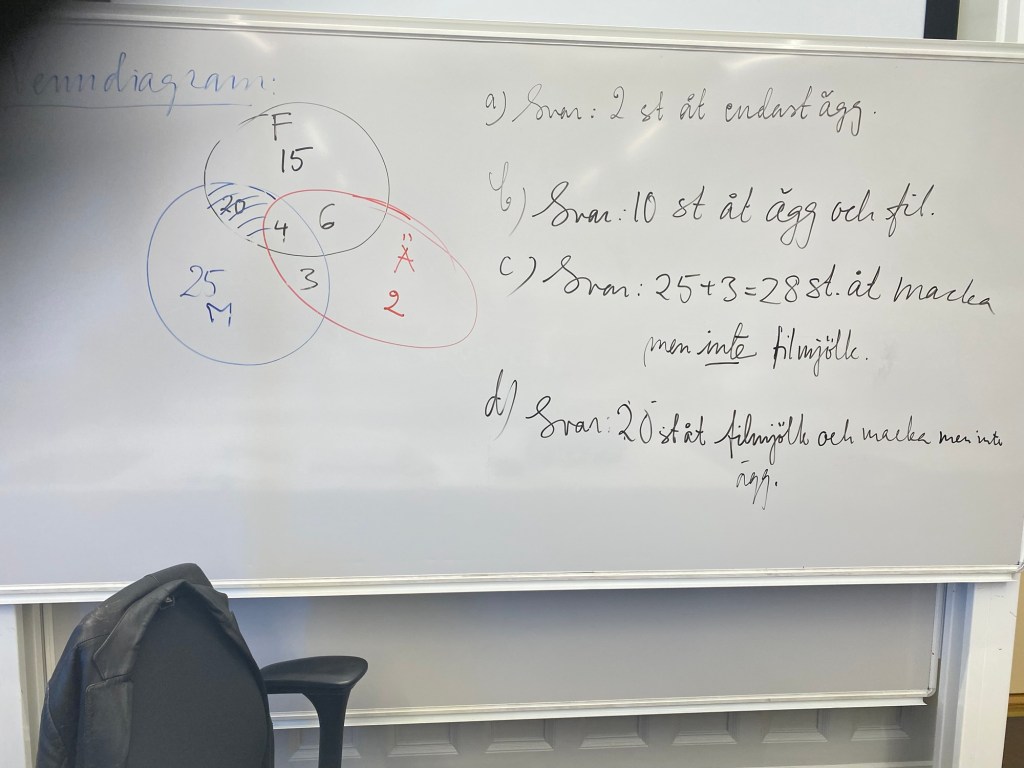 Venndiagram:
F
15
20
4
6
Ä
25
3
2
M
a) Svar: 2 st åt endast ägg.
b) Svar: 10 st åt ägg och fil.
c) Svar: 25+3=28 st. åt macka
men inte filmjölk.
d) Svar: 20 st åt filmjölk och macka men inte
ägg.